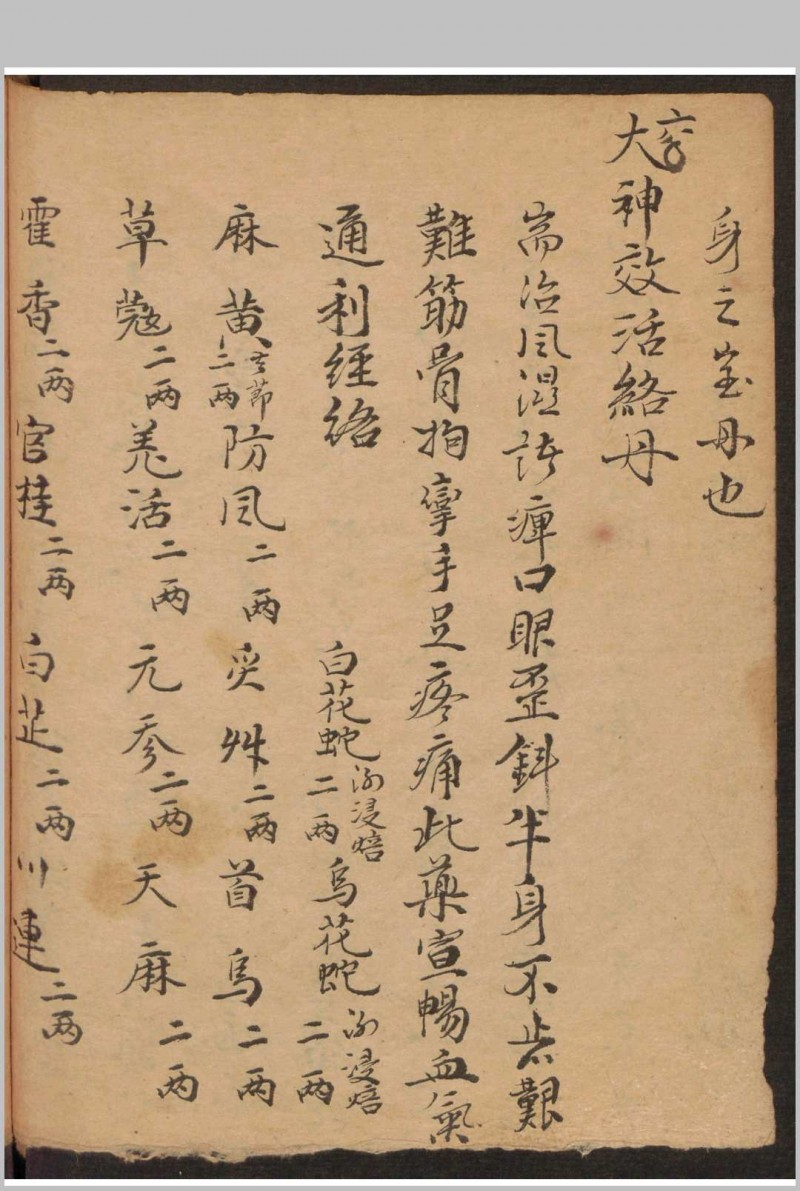 身之宝丹也
大神效活絡丹
耑治風濕諸痺口眼歪斜半身不遂艱
難筋骨拘攣手足疼痛此藥宣暢血氣
通利經絡 白花蛇酒浸焙二两 烏花蛇酒浸焙二两
麻黄去節二两 防風二两 炙艸二两 首烏二两
草蔻二两 羌活二两 元參二两 天麻二两
霍香二两 官桂二两 白芷二两 川連二两